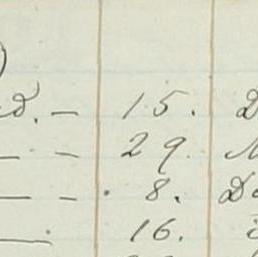 d. — 15. D
— — 29.
— — . 8. Do
— . 16.